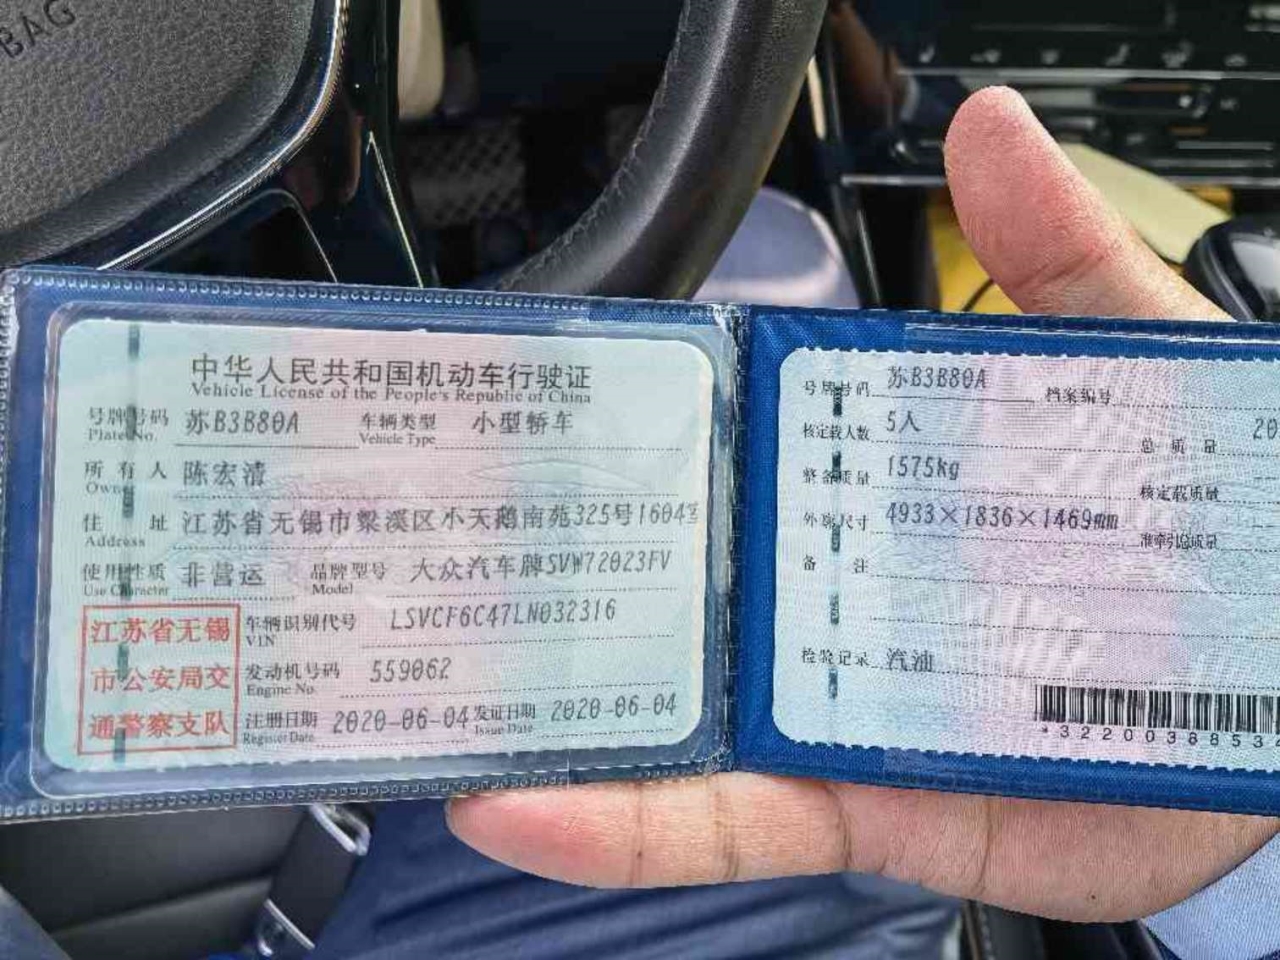 BAG
中华人民共和国机动车行驶证
Vehicle License of the People's Republic of China
号牌号码 苏B3B80A 车辆类型 小型轿车
Plate No. Vehicle Type
所有人 陈宏清
Owner
住址 江苏省无锡市梁溪区小天鹅南苑325号1604室
Address
使用性质 非营运 品牌型号 大众汽车牌SVW72023FV
Use Character Model
江苏省无锡
市公安局交
通警察支队
车辆识别代号 LSVCF6C47LN032316
VIN
发动机号码 559062
Engine No.
注册日期 2020-06-04 发证日期 2020-06-04
Register Date Issue Date
号牌号码 苏B3B80A 档案编号
核定载人数 5人 总质量 20
整备质量 1575kg 核定载质量
外廓尺寸 4933×1836×1469mm 准牵引总质量
备注
检验记录 汽油
*322003885 3